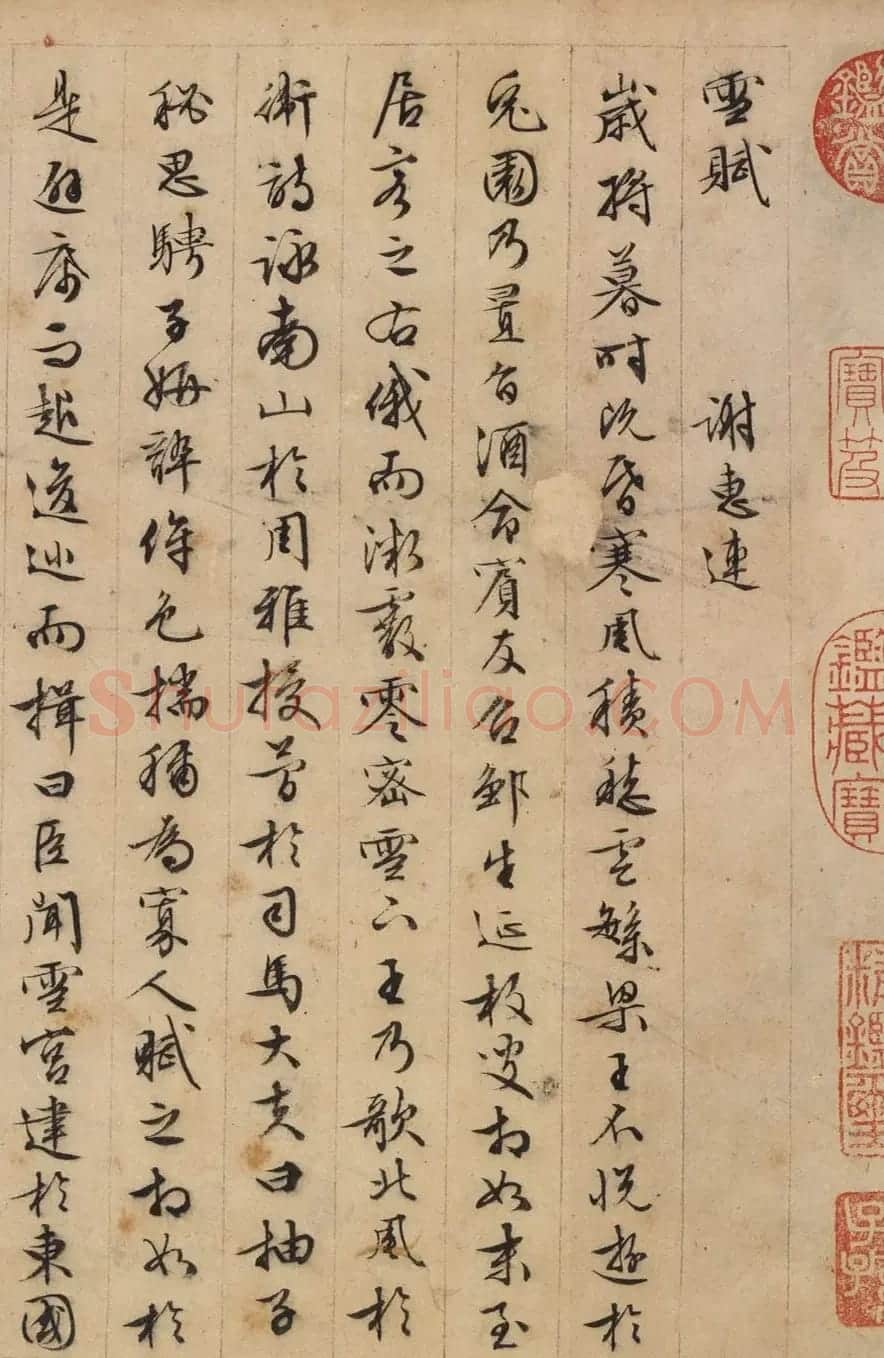 寶笈
鑑藏寶
雪賦 謝惠連
歲將暮時既昏寒風積愁雲繁梁王不悅遊於
兔園乃置旨酒命賓友召鄒生延枚叟相如末至
居客之右俄而微霰零密雪下王乃歌北風於
衛詩詠南山於周雅授簡於司馬大夫曰抽子
秘思騁子妍辭侔色揣稱為寡人賦之相如於
是避席而起逡巡而揖曰臣聞雪宮建於東國
Shufaziliao.COM